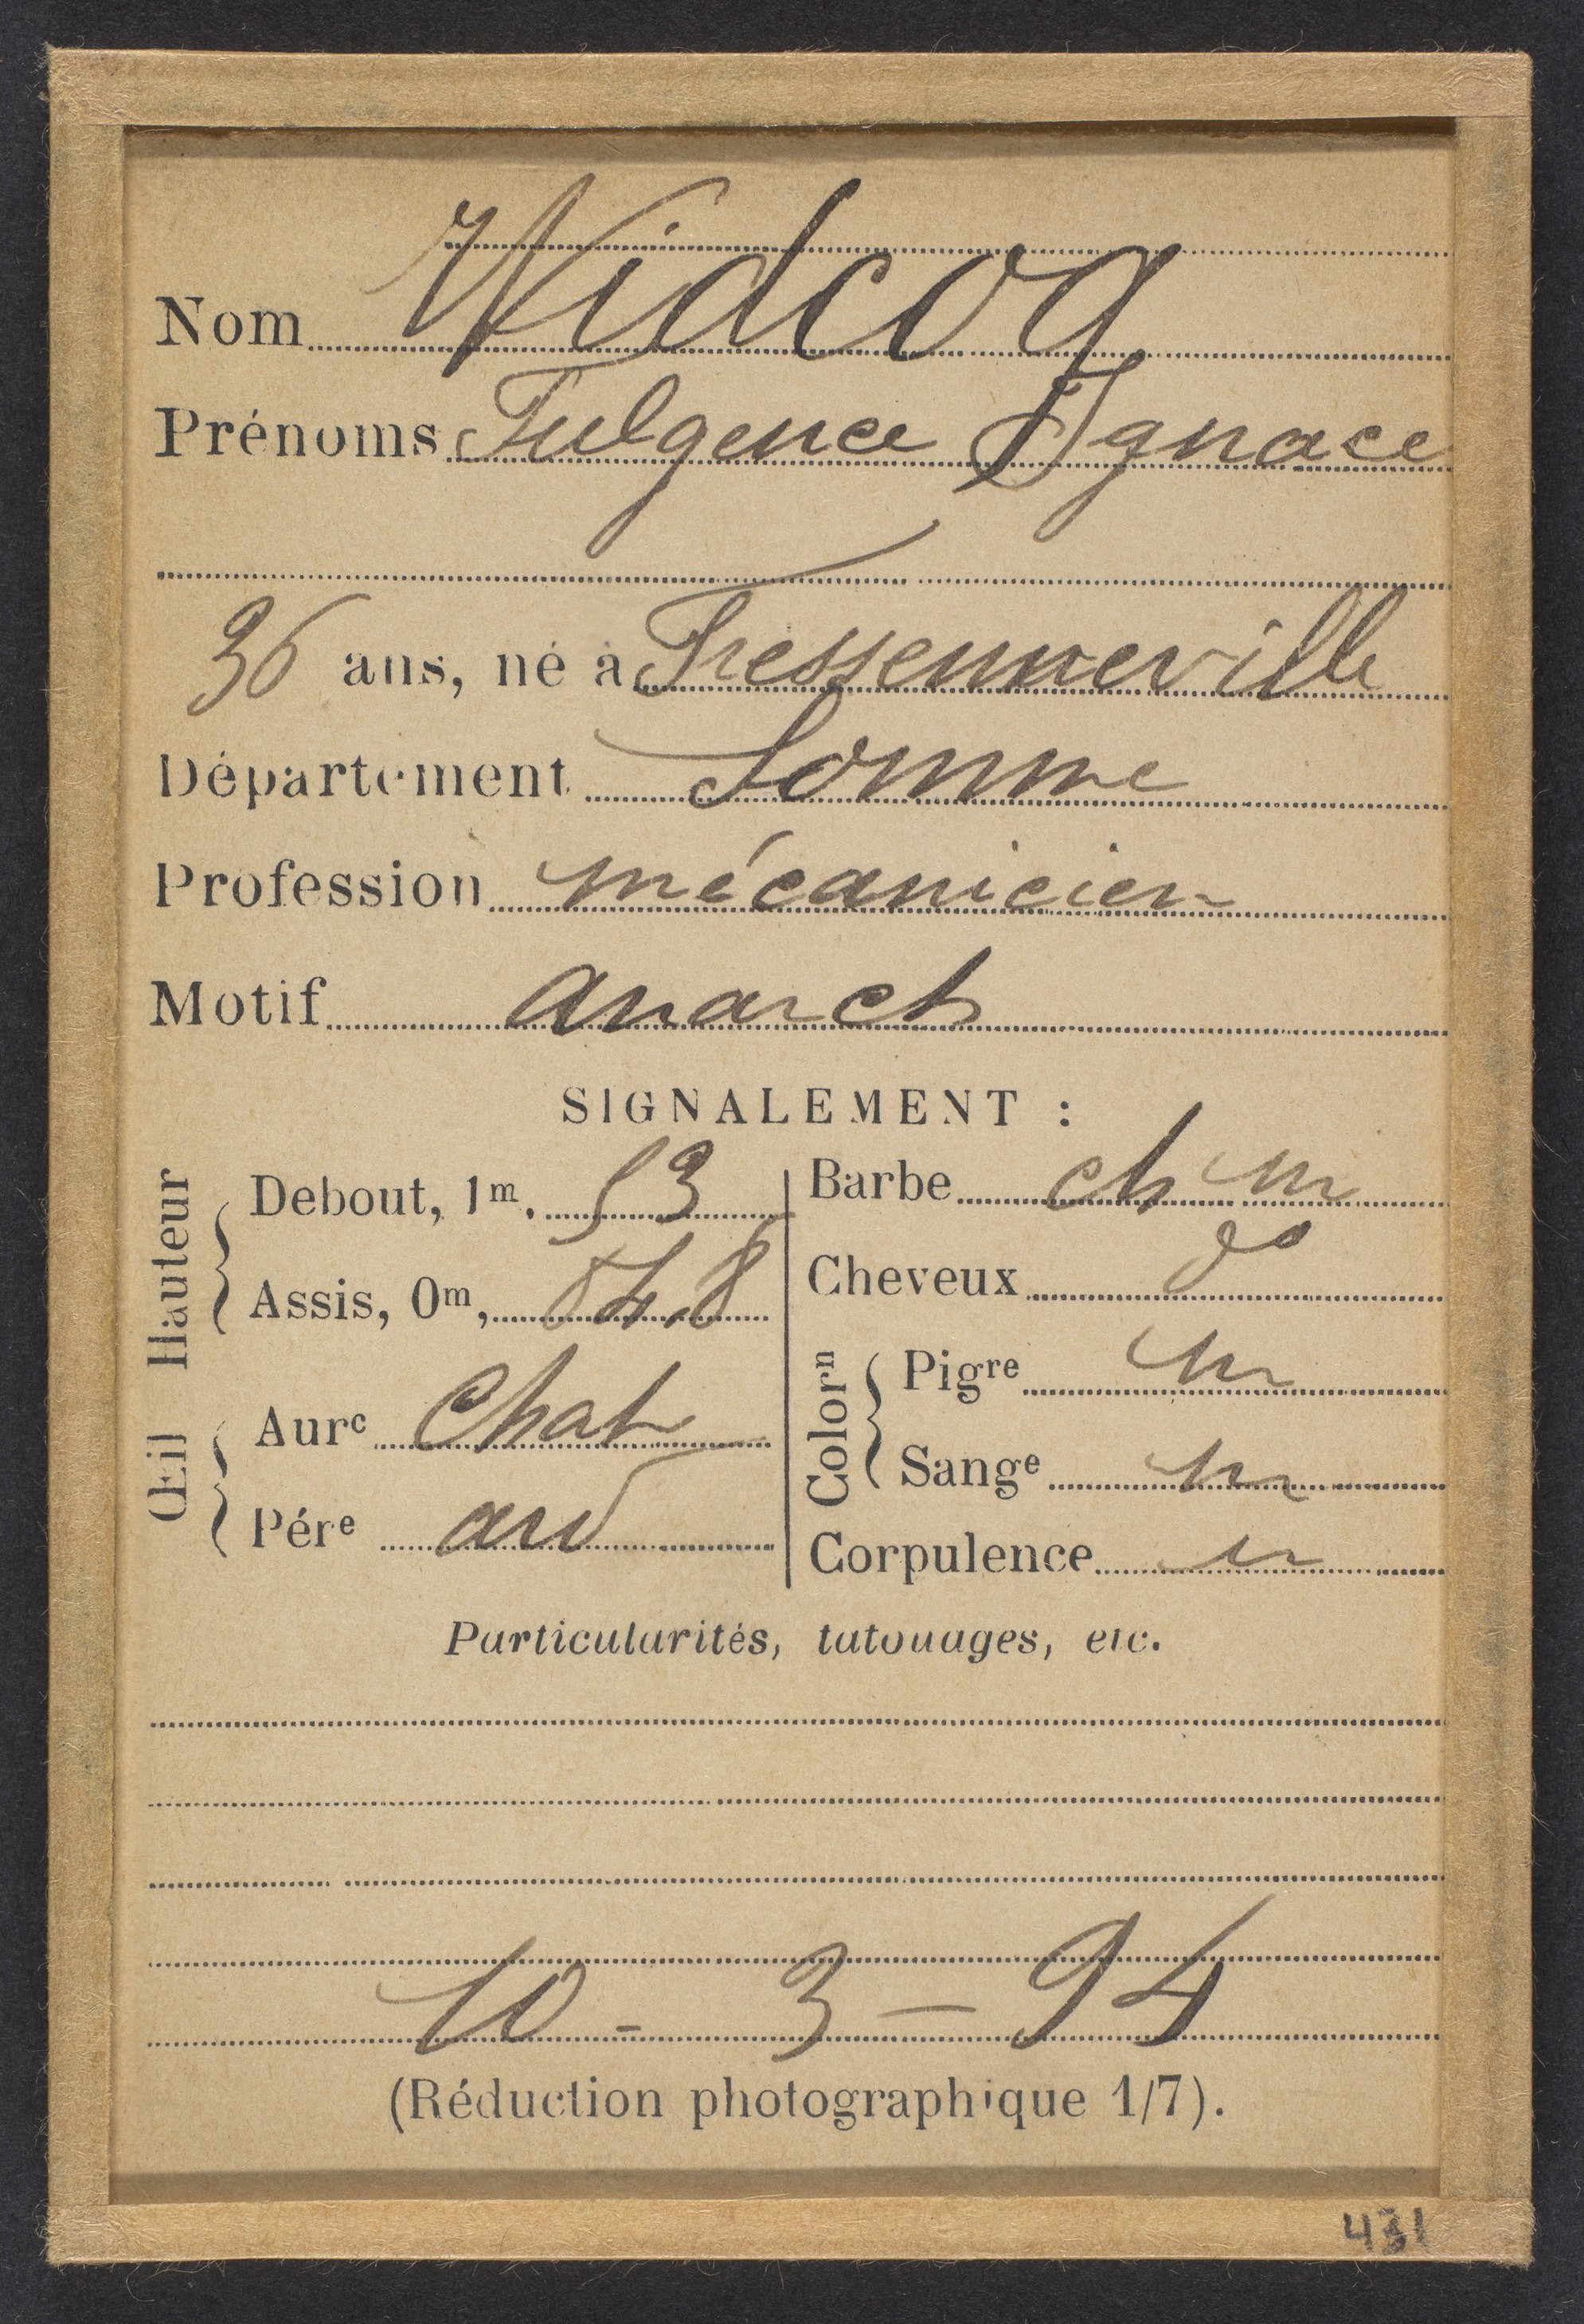 Nom Widcoq
Prénoms Fulgence Ignace
36 ans, né à Fressenneville
Département Somme
Profession mécanicien
Motif anarch
SIGNALEMENT :
Hauteur
Debout, 1m, 53
Assis, 0m, 84,8
Œil
Aurᵉ Chat
Pérᵉ
Barbe ch m
Cheveux dº
Colorⁿ
Pigʳᵉ m
Sangᵉ m
Corpulence
Particularités, tatouages, etc.
10 - 3 - 94
(Réduction photographique 1/7).
431